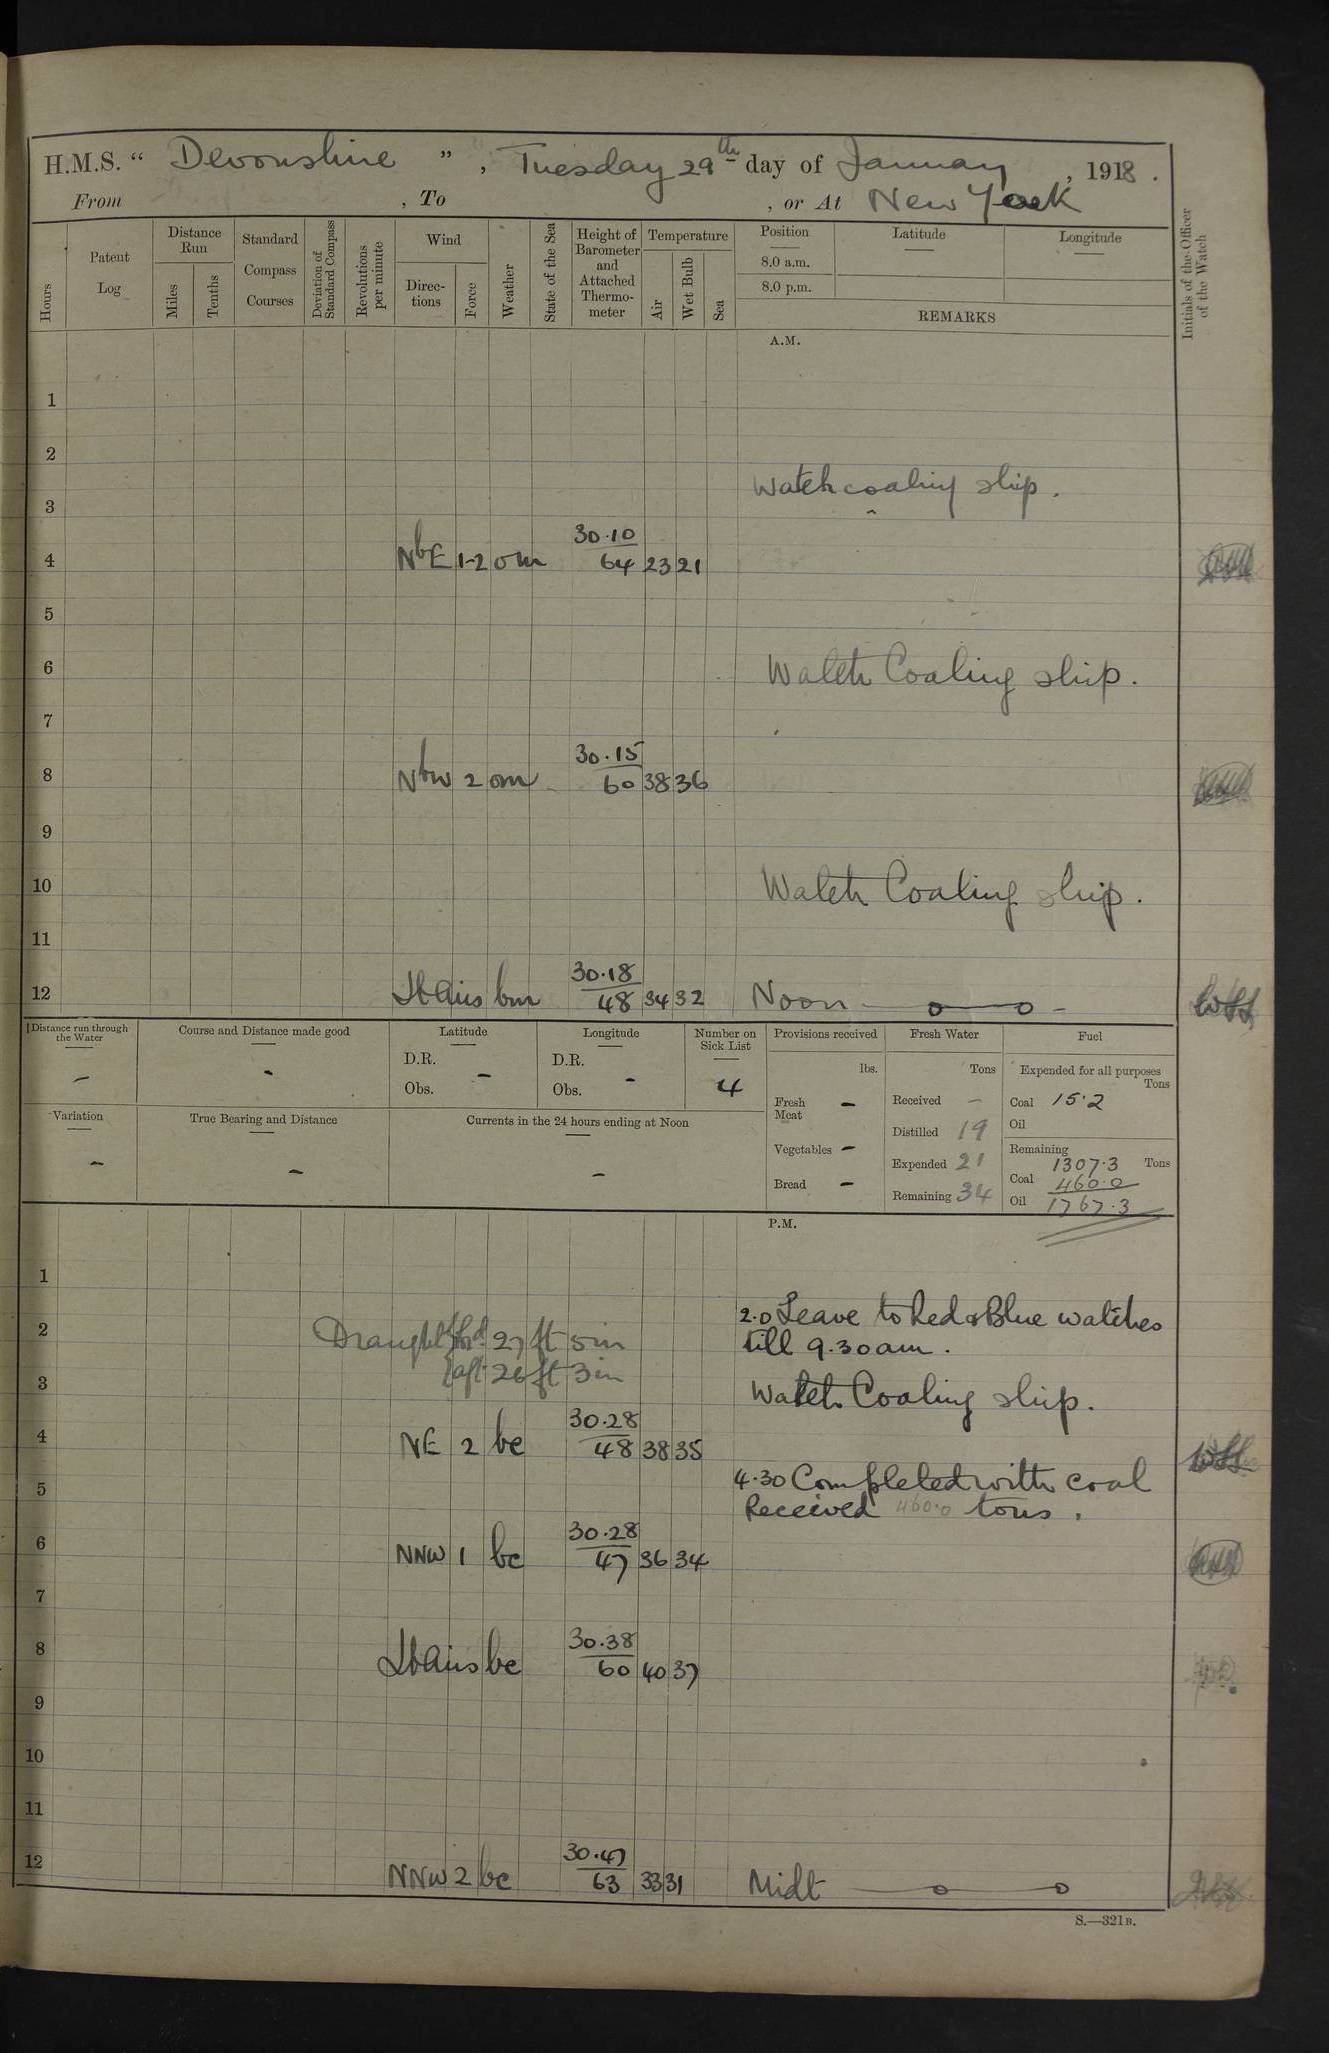 H.M.S. “ Devonshire ” , Tuesday 29th day of January , 1918.
From , To , or At New York
Hours
Patent Log
Distance Run
Miles
Tenths
Standard Compass Courses
Deviation of Standard Compass
Revolutions per minute
Wind
Direc-tions
Force
Weather
State of the Sea
Height of Barometer and Attached Thermo-meter
Temperature
Air
Wet Bulb
Sea
Position
8.0 a.m.
8.0 p.m.
Latitude
Longitude
REMARKS
Initials of the Officer of the Watch
A.M.
1
2
Watch coaling ship.
3
30.10
4 NbE 1-2 om 64 23 21
5
6 Watch Coaling ship.
7
30.15
8 NbW 2 om 60 38 36
9
10 Watch Coaling ship.
11
30.18
12 Lt Airs bm 48 34 32 Noon
Distance run through the Water
–
Course and Distance made good
-
Latitude
D.R.
Obs. –
Longitude
D.R.
Obs. -
Number on Sick List
4
Variation
–
True Bearing and Distance
–
Currents in the 24 hours ending at Noon
–
Provisions received
lbs.
Fresh Meat –
Vegetables –
Bread –
Fresh Water
Tons
Received –
Distilled 19
Expended 21
Remaining 34
Fuel
Expended for all purposes
Tons
Coal 15.2
Oil
Remaining
1307.3 Tons
Coal 460.0
Oil 1767.3
P.M.
1
2.0 Leave to Red & Blue watches
2 Draught ford 27 ft 5 in till 9.30 am.
aft 26 ft 3 in
3 Watch Coaling ship.
30.28
4 NE 2 bc 48 38 35
4.30 Completed with coal
5 Received 460.0 tons.
30.28
6 NNW 1 bc 47 36 34
7
30.38
8 Lt Airs bc 60 40 37
9
10
11
30.47
12 NNW 2 bc 63 33 31 Midt
S.—321B.